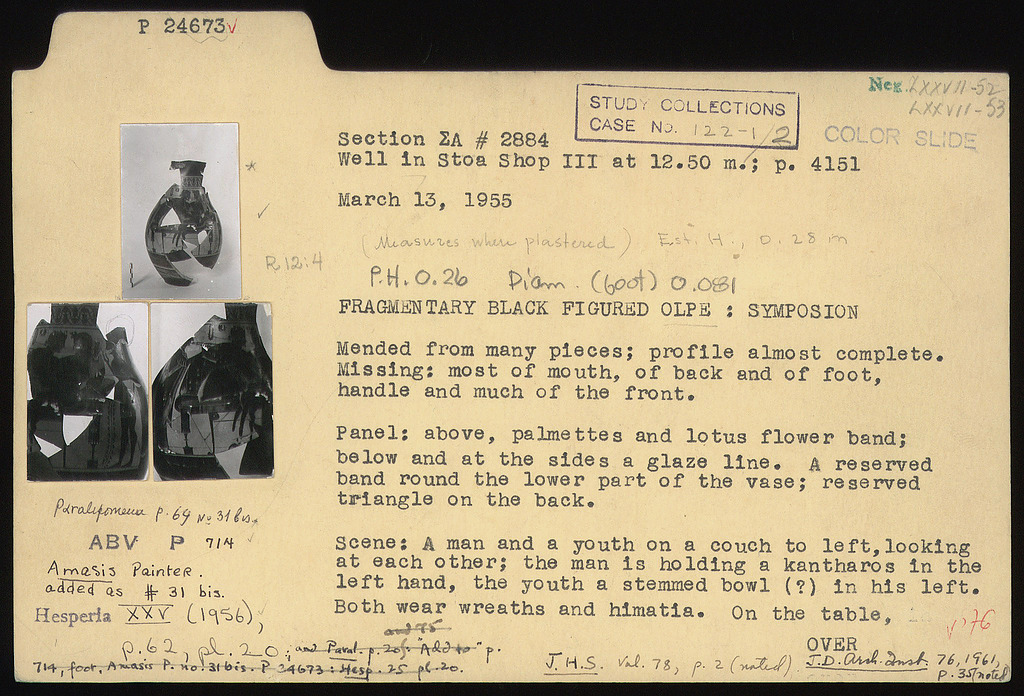 P 24673 √
Neg. LXXVII-52
LXXVII-53
STUDY COLLECTIONS
CASE NO. 122-1/2
COLOR SLIDE
Section ΣA # 2884
Well in Stoa Shop III at 12.50 m.; p. 4151
March 13, 1955
(Measures where plastered) Est. H., 0.28 m
R 12:4
P.H. 0.26 Diam. (foot) 0.081
FRAGMENTARY BLACK FIGURED OLPE : SYMPOSION
Mended from many pieces; profile almost complete.
Missing: most of mouth, of back and of foot,
handle and much of the front.
Panel: above, palmettes and lotus flower band;
below and at the sides a glaze line. A reserved
band round the lower part of the vase; reserved
triangle on the back.
Scene: A man and a youth on a couch to left, looking
at each other; the man is holding a kantharos in the
left hand, the youth a stemmed bowl (?) in his left.
Both wear wreaths and himatia. On the table,
OVER
√'76
Paralipomena p. 64 No 31 bis.
ABV P 714
Amasis Painter.
added as # 31 bis.
Hesperia XXV (1956),
p. 62, pl. 20; and Paral. p. 20f: "Add to" p.
and 75
714, foot, Amasis P. no. 31 bis. P 24673: Hesp. 25 pl. 20.
J.H.S. Vol. 78, p. 2 (noted)
J.D. Arch. Inst. 76, 1961,
p. 35 (noted